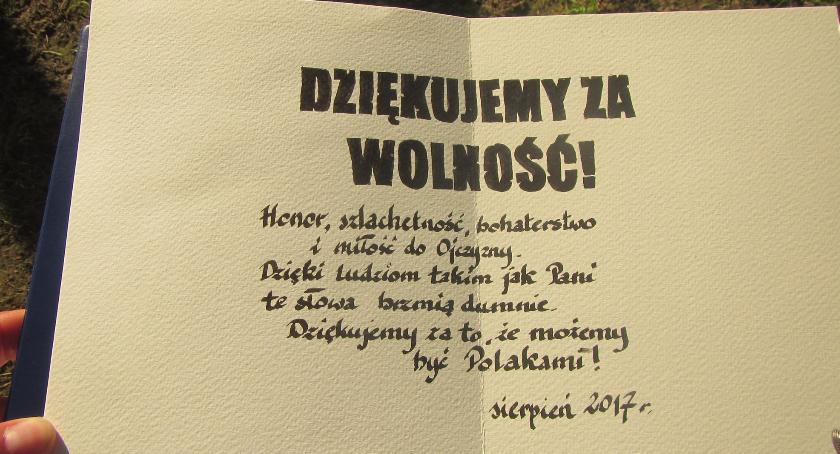 DZIĘKUJEMY ZA
WOLNOŚĆ!
Honor, szlachetność, bohaterstwo
i miłość do Ojczyzny.
Dzięki ludziom takim jak Pani
te słowa brzmią dumnie.
Dziękujemy za to, że możemy
być Polakami!
sierpień 2017 r.